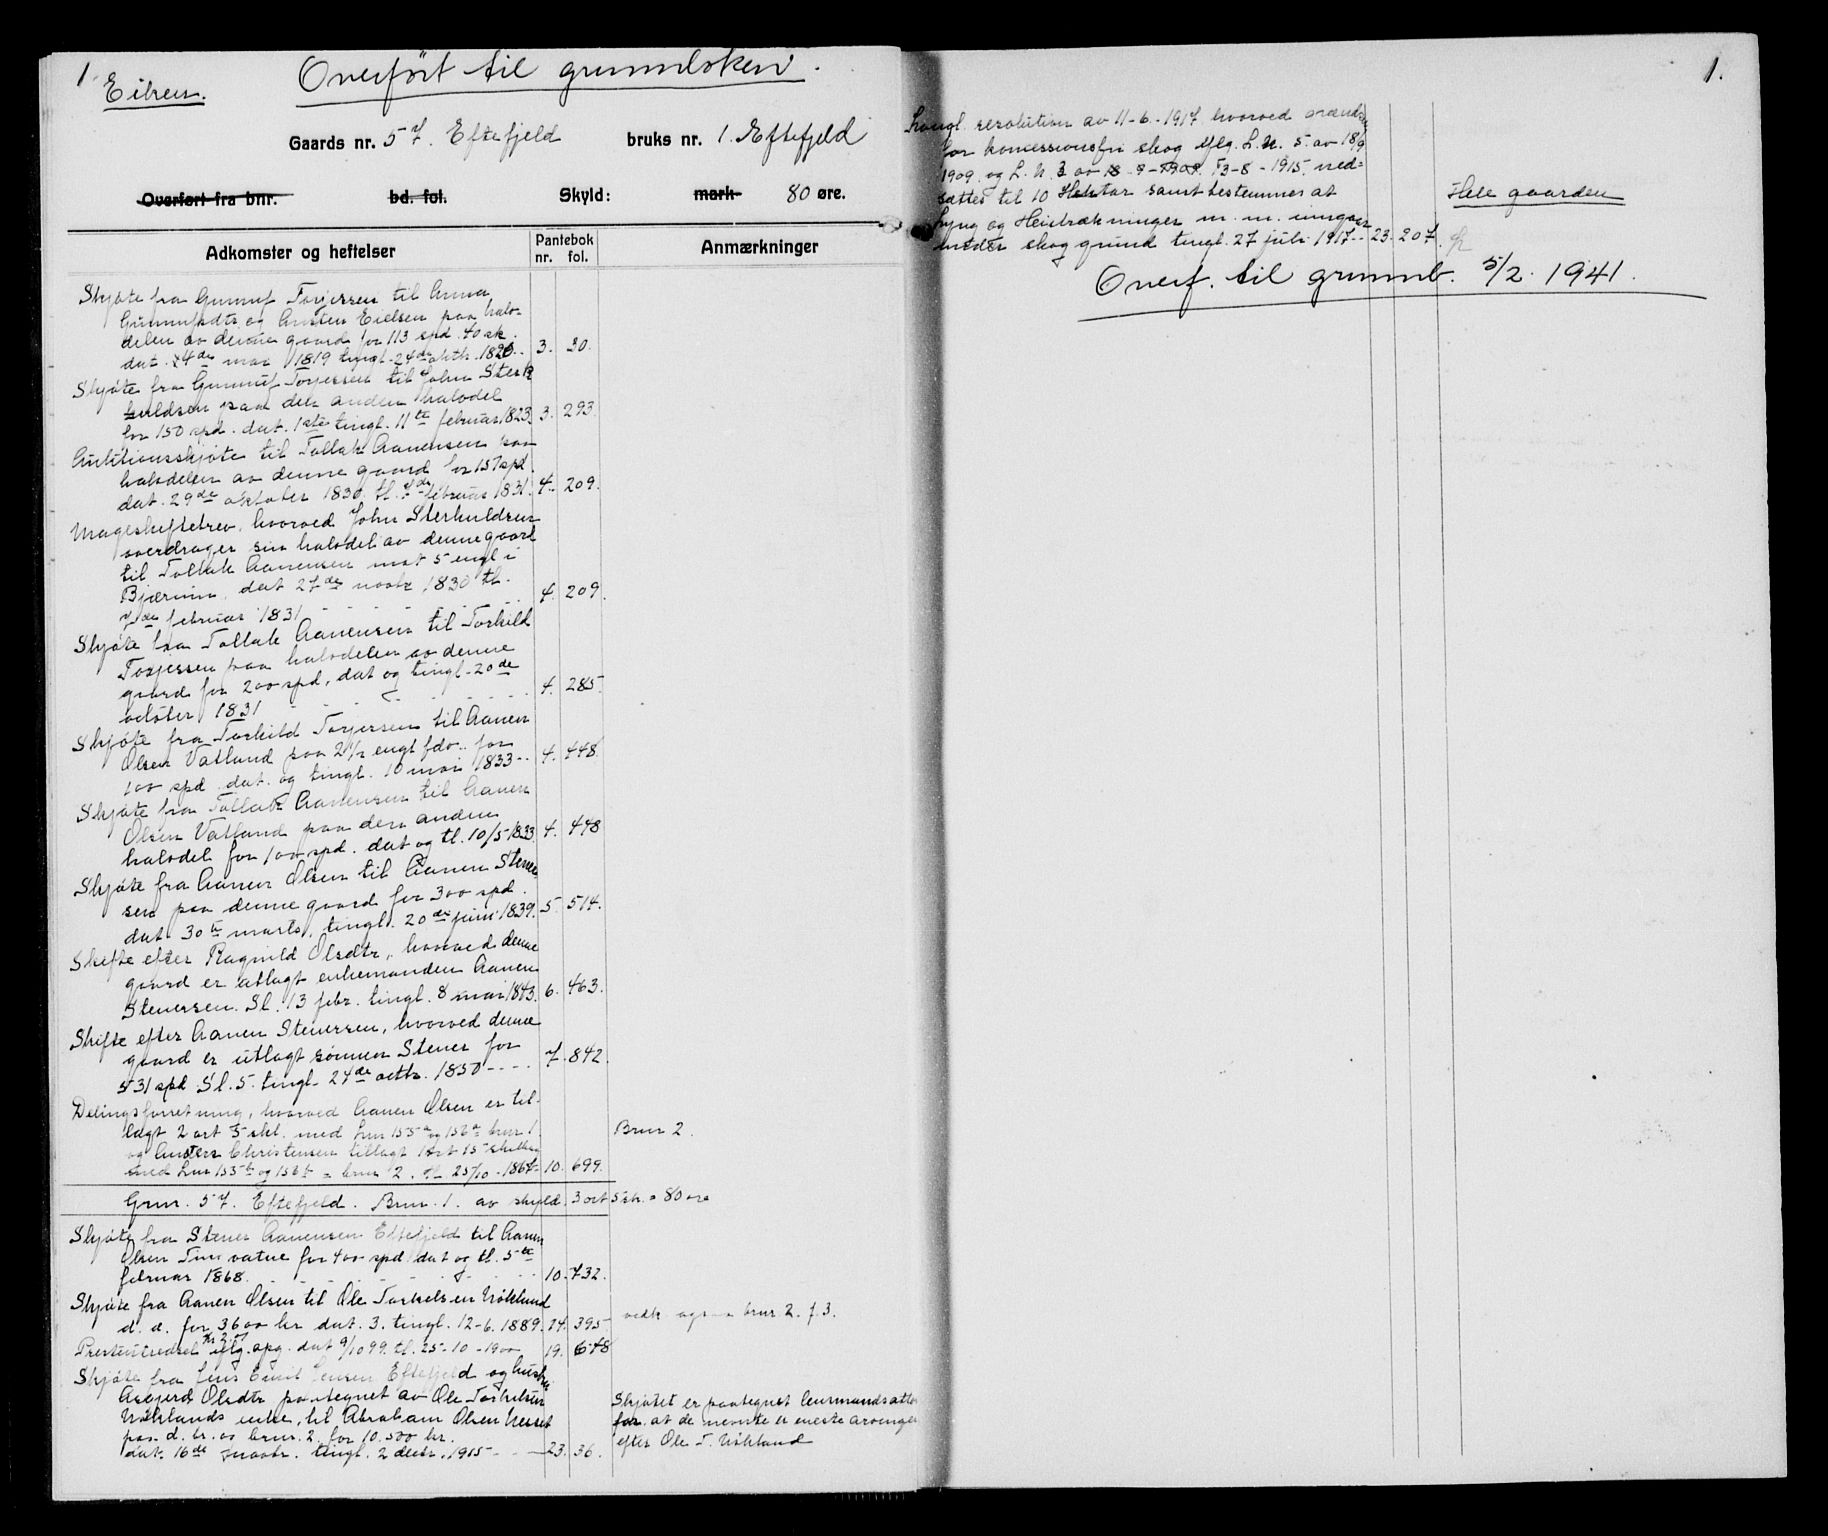 1
Eiken.
Overført til grunnboken.
Gaards nr. 57. Eftefjeld bruks nr. 1. Eftefjeld
Overført fra bnr. bd. fol. Skyld: mark 80 øre.
Adkomster og heftelser
Pantebok
nr. fol.
Anmærkninger
Skjøte fra Gunnuf Torjersen til Anna
Gunnufsdtr og Austen Eielsen paa halv-
delen av denne gaard for 113 spd. 40 sk.
dat. 24de mai 1819 tingl. 24de oktb. 1820. 3. 30.
Skjøte fra Gunnuf Torjersen til John Sterk
huldsen paa den anden halvdel
for 150 spd. dat. 1ste tingl. 11te februar 1823. 3. 293.
Auktionsskjøte til Tollak Aanensen paa
halvdelen av denne gaard for 157 spd.
dat. 29de oktober 1830. tl. 7de februar 1831. 4. 209.
Mageskiftebrev, hvorved John Sterkuldsen
overdrager sin halvdel av denne gaard
til Tollak Aanensen mot 5 engl i
Bjærum, dat 27de novbr. 1830 tl.
7de februar 1831 4. 209.
Skjøte fra Tollak Aanensen til Torkild
Torjessen paa halvdelen av denne
gaard for 200 spd, dat og tingl. 20de
october 1831 4. 285.
Skjøte fra Torkild Torjersen til Aanen
Olsen Vatland paa 2 1/2 engl fdv. for
100 spd dat. og tingl. 10 mai 1833 4. 448.
Skjøte fra Tollak Aanensen til Aanen
Olsen Vatland paa den anden
halvdel for 100 spd. dat og tl. 10/5 1833. 4. 448
Skjøte fra Aanen Olsen til Aanen Stener-
sen paa denne gaard for 300 spd.
dat. 30te marts, tingl. 20de juni 1839. 5. 514.
Skifte efter Ragnild Olsdtr, hvorved denne
gaard er utlagt enkemanden Aanen
Stenersen. Sl. 13 febr. tingl. 8 mai 1843. 6. 463.
Skifte efter Aanen Stenersen, hvorved denne
gaard er utlagt sønnen Stener for
531 spd Sl. 5. tingl. 24de octbr. 1850 7. 842.
Delingsforretning, hvorved Aanen Olsen er til-
lagt 2 ort 5 skl. med Lnr 155a og 156a bnr 1
og Austen Christensen tillagt 1 ort 15 skilling
med Lnr 155b og 156b = bnr 2. tl. 25/10 - 1867 10. 699.
Brnr 2.
Gnr. 57. Eftefjeld. Brnr. 1. av skyld. 3 ort 5 sk. = 80 øre
Skjøte fra Stener Aanensen Eftefjeld til Aanen
Olsen Tinnvatne for 400 spd dat og tl. 5te
februar 1868. 10. 732.
Skjøte fra Aanen Olsen til Ole Torkelsen Ukkland
d. d. for 3600 kr dat. 3. tingl. 12-6. 1889. 14. 395
vedk. ogsaa bnr. 2. f. 3.
kr 2.
iflg. opg. dat 9/10 99. tl. 25-10-1900 19. 648
Skjøte fra Jens Emil Jensen Eftefjeld og hustru
Asgjerd Olsdtr paategnet av Ole Torkelsen
Ukklands enke, til Abraham Olsen Nesset
paa d. br. og brnr. 2 for 10.500 kr.
dat. 16de novbr. tingl. 2 decbr. 1915 23. 36.
Skjøtet er paategnet lensmandsattest
for at de nævnte er eneste arvinger
efter Ole T. Ukkland
1.
Kongl. resolution av 11-6-1917 hvorved grænsen
for koncessionsfri skog iflg. L. N. 5. av 18/9
1909. og L. N. 3 av 8-9-1909. 13-8-1915. ned-
sættes til 10 Hektar samt bestemmes at
Lyng og Heistrækninger m. m. inngaar
under skoggrund tingl. 27 juli 1917 23. 207.
Hele gaarden
Overf. til grunnb. 5/2. 1941.